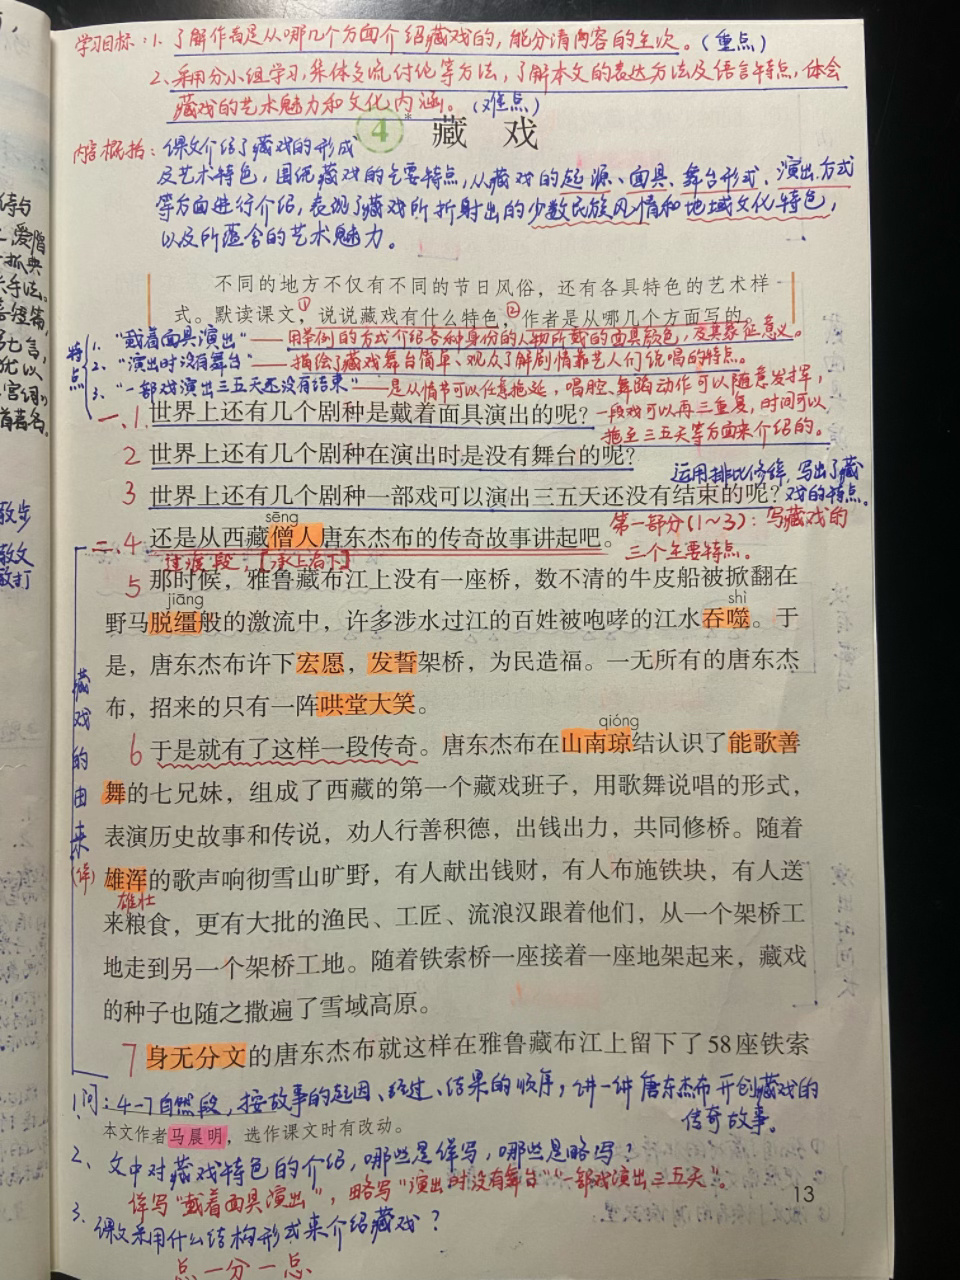 学习目标：1、了解作者是从哪几个方面介绍藏戏的，能分清内容的主次。（重点）
2、采用分小组学习，集体交流讨论等方法，了解本文的表达方法及语言特点，体会
藏戏的艺术魅力和文化内涵。（难点）
4* 藏 戏
内容概括：课文介绍了藏戏的形成
及艺术特色，围绕藏戏的主要特点，从藏戏的起源、面具、舞台形式、演出方式
等方面进行介绍，表现了藏戏所折射出的少数民族风情和地域文化特色，
以及所蕴含的艺术魅力。
不同的地方不仅有不同的节日风俗，还有各具特色的艺术样
式。默读课文，①说说藏戏有什么特色，②作者是从哪几个方面写的。
特点
1、“戴着面具演出”——用举例的方式介绍各种身份的人物所戴的面具颜色，及其象征意义。
2、“演出时没有舞台”——描绘了藏戏舞台简单、观众了解剧情靠艺人们说唱的特点。
3、“一部戏演出三五天还没有结束”——是从情节可以任意拖延，唱腔、舞蹈动作可以随意发挥，
一段戏可以再三重复，时间可以
拖至三五天等方面来介绍的。
一、1.世界上还有几个剧种是戴着面具演出的呢？
2 世界上还有几个剧种在演出时是没有舞台的呢？
运用排比修辞，写出了藏
戏的特点。
3 世界上还有几个剧种一部戏可以演出三五天还没有结束的呢？
第一部分（1～3）：写藏戏的
三个主要特点。
sēng
二、4.还是从西藏僧人唐东杰布的传奇故事讲起吧。
过渡段，【承上启下】
5 那时候，雅鲁藏布江上没有一座桥，数不清的牛皮船被掀翻在
jiāng shì
野马脱缰般的激流中，许多涉水过江的百姓被咆哮的江水吞噬。于
是，唐东杰布许下宏愿，发誓架桥，为民造福。一无所有的唐东杰
布，招来的只有一阵哄堂大笑。
qióng
6 于是就有了这样一段传奇。唐东杰布在山南琼结认识了能歌善
舞的七兄妹，组成了西藏的第一个藏戏班子，用歌舞说唱的形式，
表演历史故事和传说，劝人行善积德，出钱出力，共同修桥。随着
雄浑的歌声响彻雪山旷野，有人献出钱财，有人布施铁块，有人送
雄壮
来粮食，更有大批的渔民、工匠、流浪汉跟着他们，从一个架桥工
地走到另一个架桥工地。随着铁索桥一座接着一座地架起来，藏戏
的种子也随之撒遍了雪域高原。
藏戏的由来（详）
7 身无分文的唐东杰布就这样在雅鲁藏布江上留下了58座铁索
1、问：4-7自然段，按故事的起因、经过、结果的顺序，讲一讲唐东杰布开创藏戏的
传奇故事。
本文作者马晨明，选作课文时有改动。
2、文中对藏戏特色的介绍，哪些是详写，哪些是略写？
详写“戴着面具演出”，略写“演出时没有舞台”“一部戏演出三五天”。
13
3、课文采用什么结构形式来介绍藏戏？
总一分一总